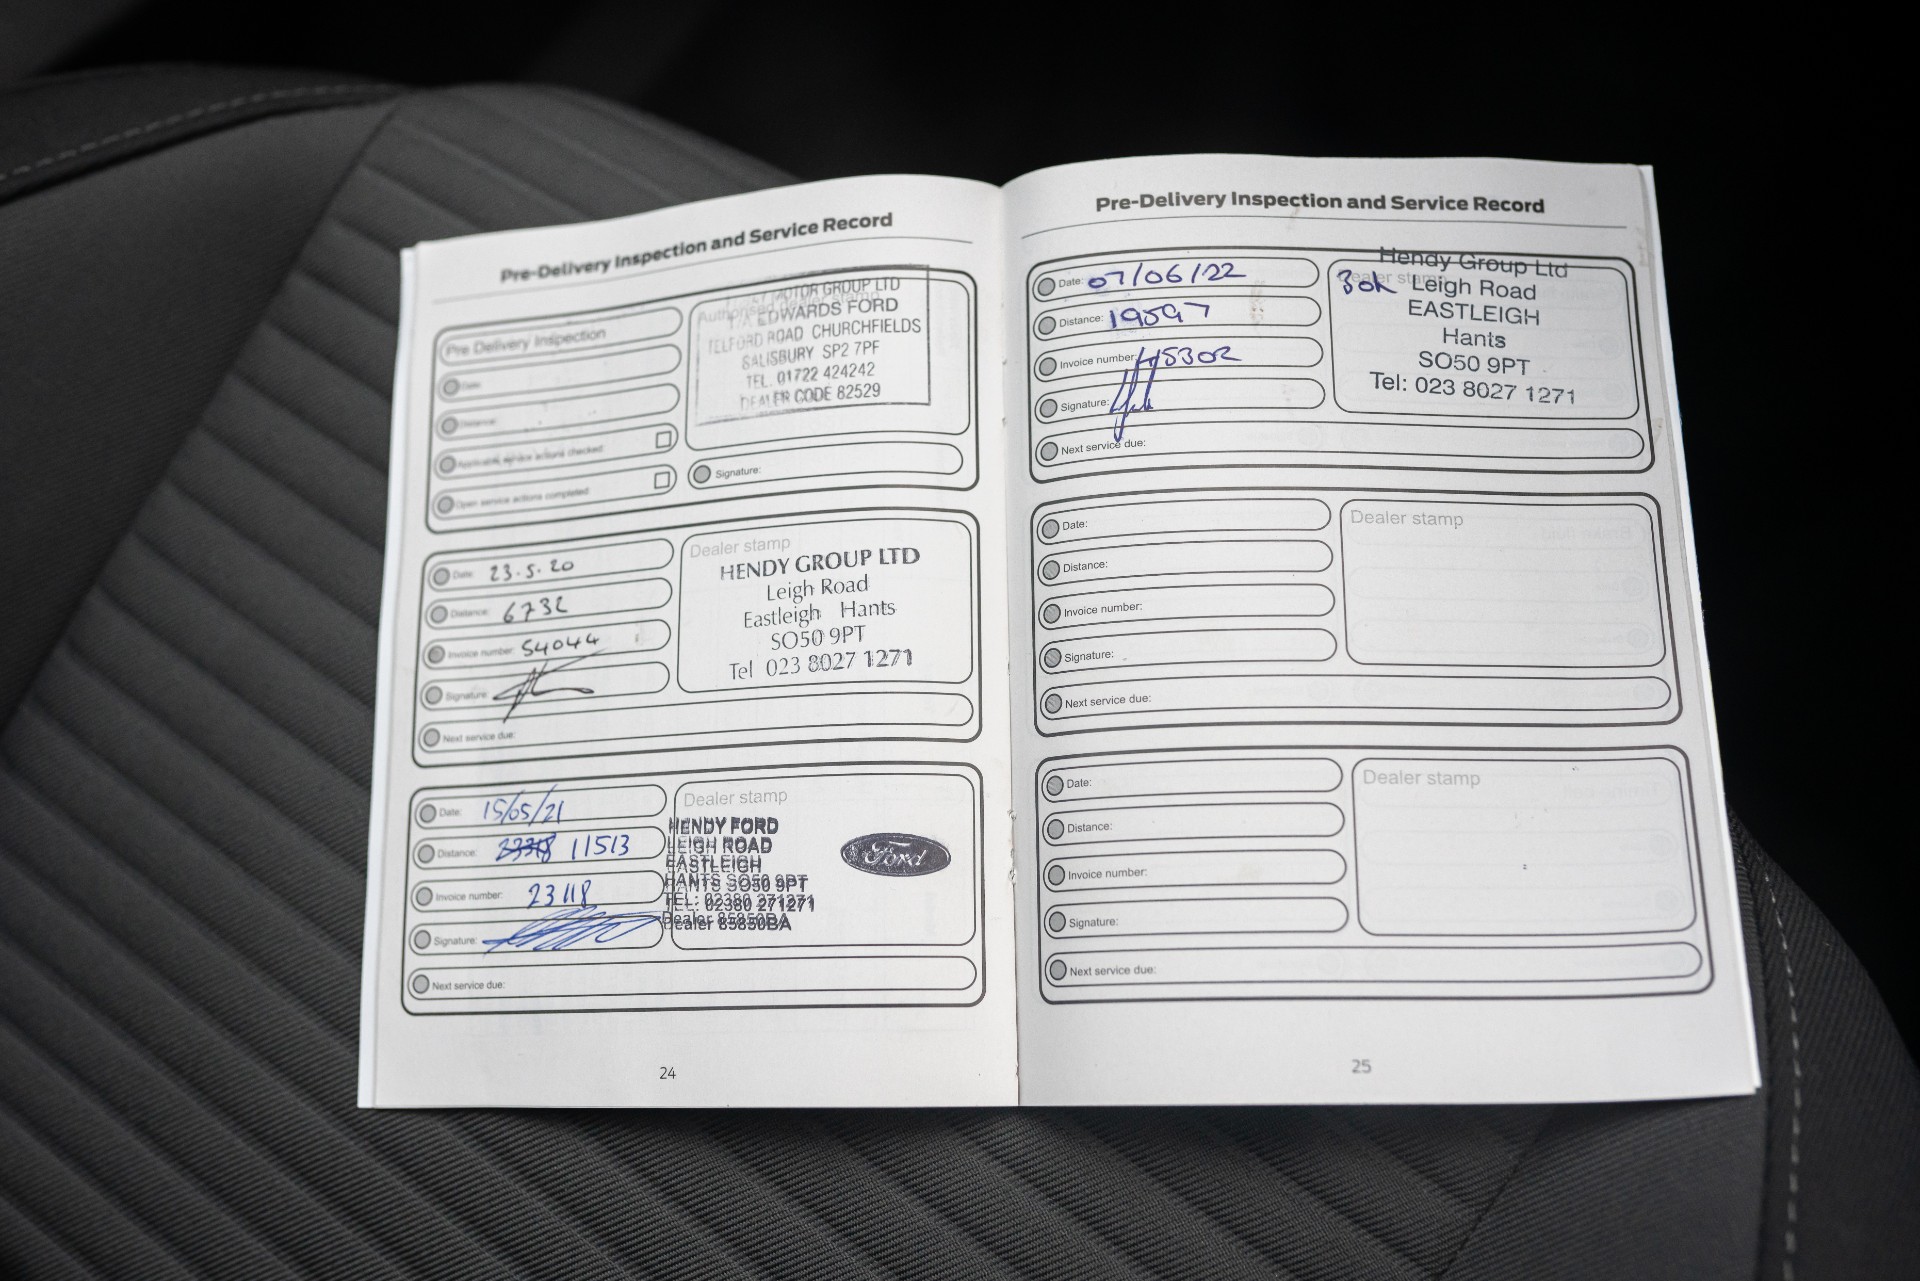 Pre-Delivery Inspection and Service Record
Pre Delivery Inspection
Date:
Distance:
Applicable service actions checked
Open service actions completed
Dealer stamp
MOTOR GROUP LTD
T/A EDWARDS FORD
TELFORD ROAD CHURCHFIELDS
SALISBURY SP2 7PF
TEL. 01722 424242
DEALER CODE 82529
Signature:
Date: 23.5.20
Distance: 6732
Invoice number: 54044
Signature:
Next service due:
Dealer stamp
HENDY GROUP LTD
Leigh Road
Eastleigh Hants
SO50 9PT
Tel 023 8027 1271
Date: 15/05/21
Distance: 11513
Invoice number: 23118
Signature:
Next service due:
Dealer stamp
HENDY FORD
LEIGH ROAD
EASTLEIGH
HANTS SO50 9PT
TEL: 02380 271271
Dealer 85850BA
Ford
24
Pre-Delivery Inspection and Service Record
Date: 07/06/22
Distance: 19097
Invoice number: 45302
Signature:
Next service due:
Dealer stamp
Hendy Group Ltd
30k Leigh Road
EASTLEIGH
Hants
SO50 9PT
Tel: 023 8027 1271
Date:
Distance:
Invoice number:
Signature:
Next service due:
Dealer stamp
Date:
Distance:
Invoice number:
Signature:
Next service due:
Dealer stamp
25